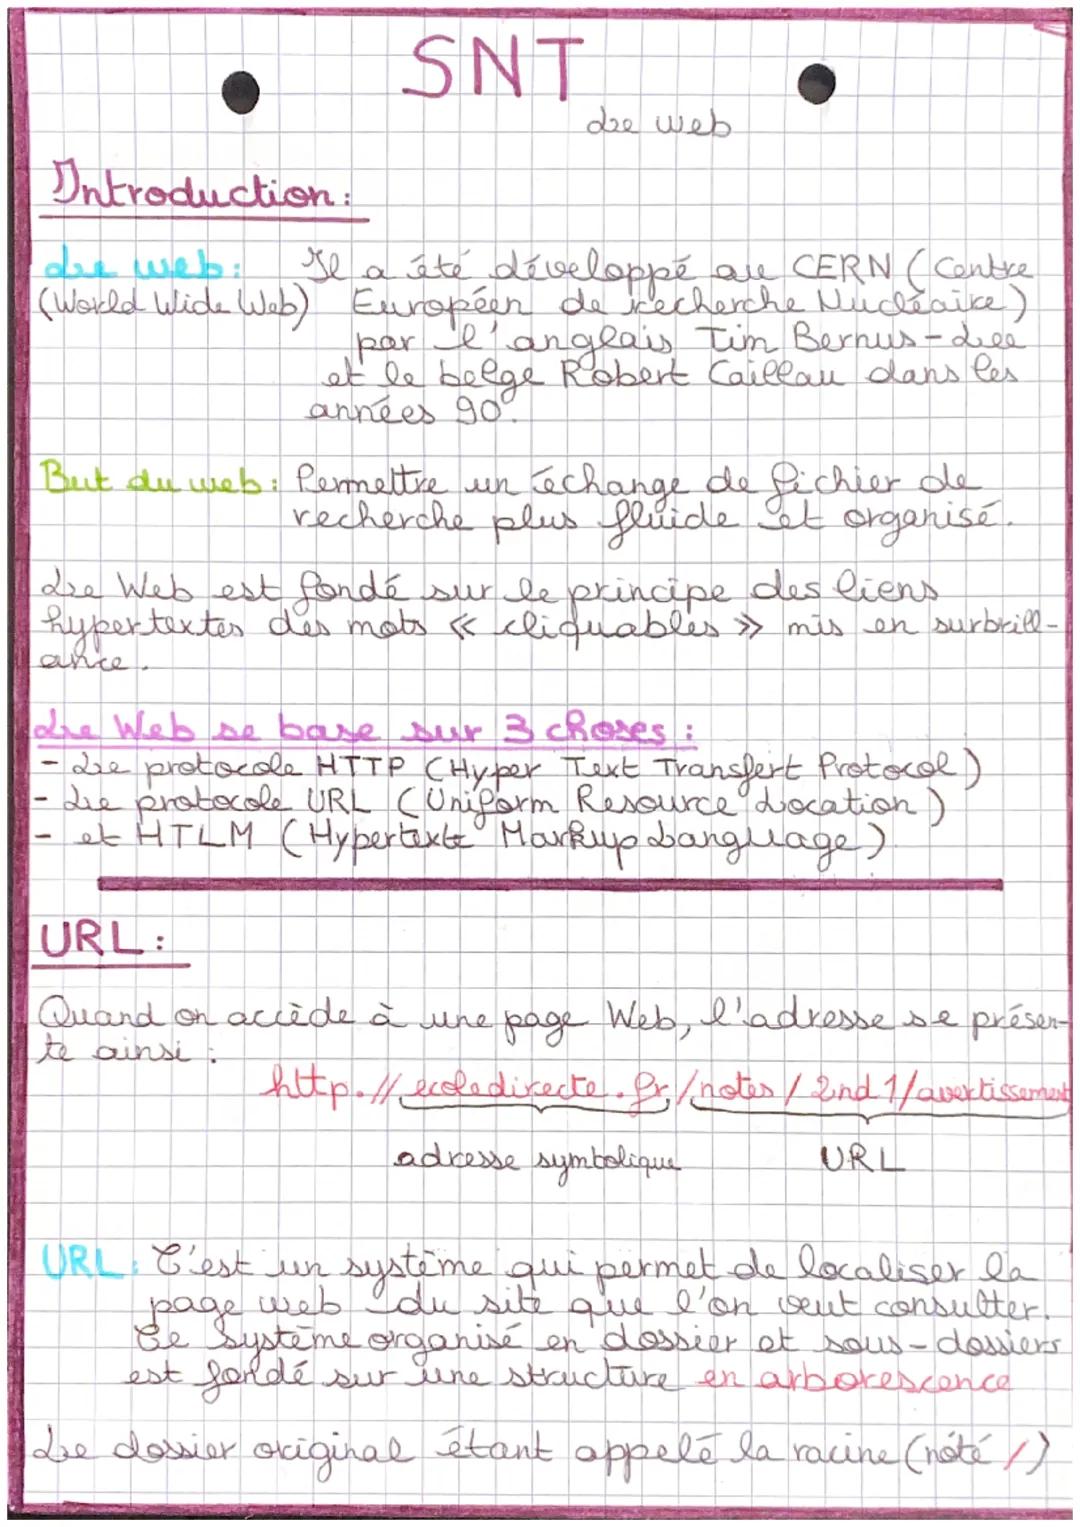 SNT
Le web
Introduction:
Le web: Il a été développé au CERN (Centre
(World Wide Web) Européen de recherche Nucléaire)
par l'anglais Tim Bernus-Lee
et le belge Robert Caillau dans les
années 90.
But du web: Permettre un échange de fichier de
recherche plus fluide et organisé.
Le Web est fondé sur le principe des liens
hypertextes des mots « cliquables » mis en surbrill-
ance.
Le Web se base sur 3 choses :
- Le protocole HTTP (Hyper Text Transfert Protocol)
- Le protocole URL (Uniform Resource Location)
- et HTLM (Hypertexte Markup Language)
URL:
Quand on accède à une page Web, l'adresse se présen-
te ainsi :
http.//ecoledirecte.fr/notes/2nd1/avertissement
adresse symbolique URL
URL: C'est un système qui permet de localiser la
page web du site que l'on veut consulter.
Ce système organisé en dossier et sous-dossiers
est fondé sur une structure en arborescence
Le dossier original étant appelé la racine (noté /)